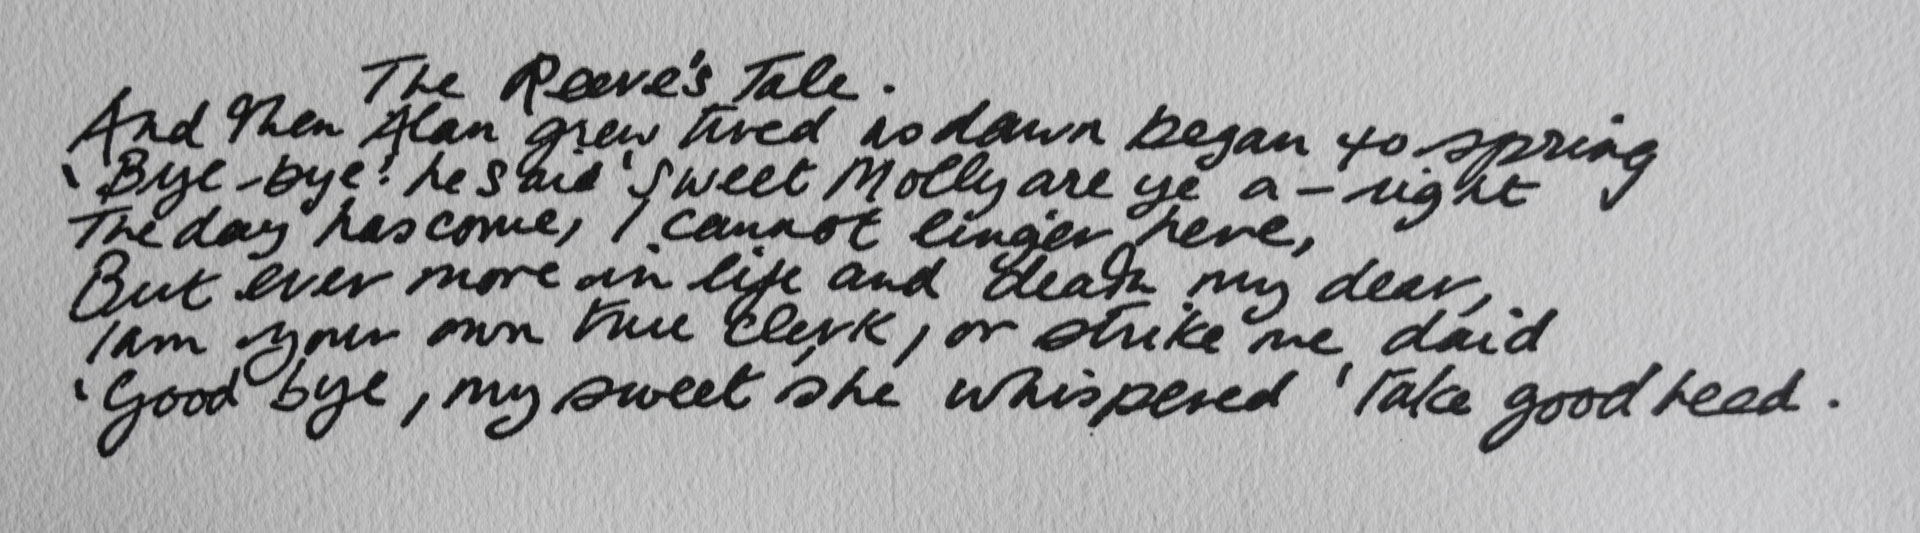 The Reeve's Tale.
And then Alan grew tired as dawn began to spring
'Bye-bye' he said 'Sweet Molly are ye a-right
The day has come, I cannot linger here,
But ever more in life and death my dear,
I am your own true clerk, or strike me daid
'Good bye, my sweet she whispered 'Take good heed.